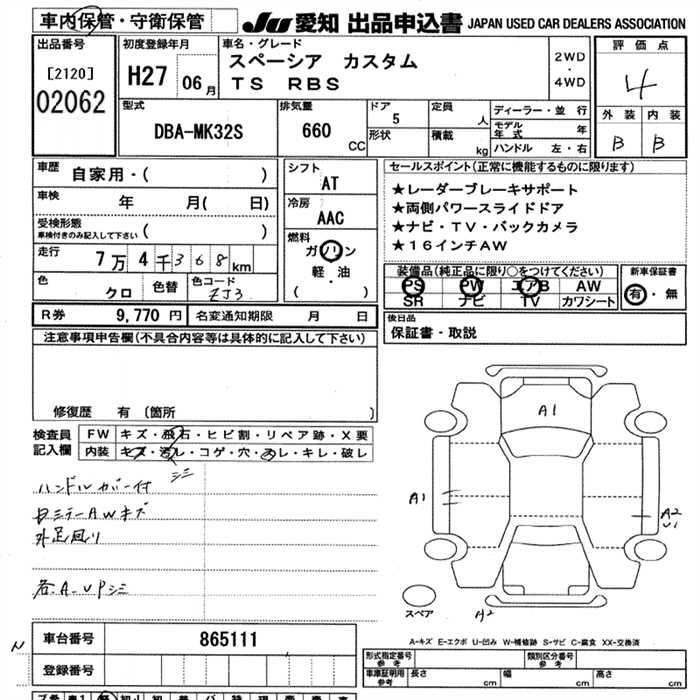 車内保管・守衛保管
JU 愛知 出品申込書 JAPAN USED CAR DEALERS ASSOCIATION
出品番号
[2120]
02062
初度登録年月
H27 06月
車名・グレード
スペーシア カスタム
TS RBS
2WD
・
4WD
評価点
4
外装 内装
B B
型式
DBA-MK32S
排気量
660 CC
ドア
5
形状
定員
人
積載
kg
ディーラー・並行
モデル年式 年
ハンドル 左・右
車歴
自家用・( )
車検
年 月( 日)
受検形態
車検付きのみ記入して下さい ( )
走行
7万4千368km
色
クロ
色替
色コード
ZJ3
シフト
AT
冷房
AAC
燃料
ガソリン
軽・油
( )
セールスポイント(正常に機能するものに限ります)
★レーダーブレーキサポート
★両側パワースライドドア
★ナビ・TV・バックカメラ
★16インチAW
装備品(純正品に限り○をつけてください)
PS PW エアB AW
SR ナビ TV カワシート
新車保証書
有・無
R券 9,770円 名変通知期限 月 日
後日品
保証書・取説
注意事項申告欄(不具合内容等は具体的に記入して下さい)
修復歴 有 〔箇所 〕
検査員
記入欄
FW キズ・飛石・ヒビ割・リペア跡・X要
内装 キズ・汚レ・コゲ・穴・スレ・キレ・破レ
シミ
ハンドルカバー付
外足回り
各A.UPシミ
A1
A1
A2
U1
A2
スペア
A-キズ E-エクボ U-凹み W-補修跡 S-サビ C-腐食 XX-交換済
N
車台番号 865111
登録番号
形式指定番号
参考
類別区分番号
参考
車庫証明用
参考
長さ cm 幅 cm 高さ cm